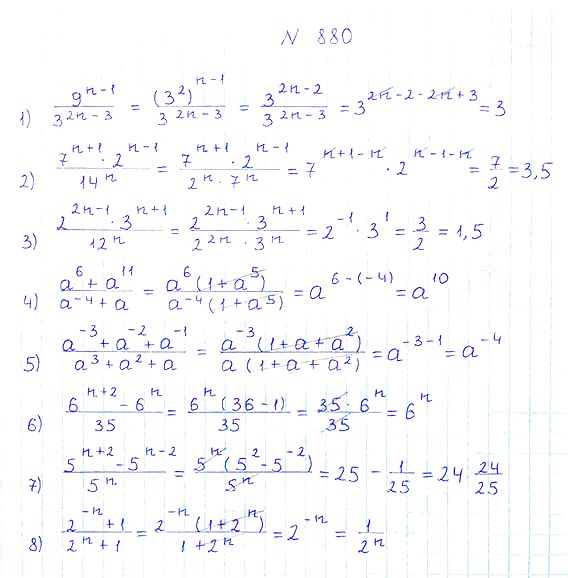 N 880
1) 9^{n-1}/3^{2n-3} = (3^2)^{n-1}/3^{2n-3} = 3^{2n-2}/3^{2n-3} = 3^{2n-2-2n+3} = 3
2) 7^{n+1} · 2^{n-1}/14^n = 7^{n+1} · 2^{n-1}/2^n · 7^n = 7^{n+1-n} · 2^{n-1-n} = 7/2 = 3,5
3) 2^{2n-1} · 3^{n+1}/12^n = 2^{2n-1} · 3^{n+1}/2^{2n} · 3^n = 2^{-1} · 3^1 = 3/2 = 1,5
4) a^6 + a^{11}/a^{-4} + a = a^6 (1 + a^5)/a^{-4} (1 + a^5) = a^{6-(-4)} = a^{10}
5) a^{-3} + a^{-2} + a^{-1}/a^3 + a^2 + a = a^{-3} (1 + a + a^2)/a (1 + a + a^2) = a^{-3-1} = a^{-4}
6) 6^{n+2} - 6^n/35 = 6^n (36 - 1)/35 = 35 · 6^n/35 = 6^n
7) 5^{n+2} - 5^{n-2}/5^n = 5^n (5^2 - 5^{-2})/5^n = 25 - 1/25 = 24 24/25
8) 2^{-n} + 1/2^n + 1 = 2^{-n} (1 + 2^n)/1 + 2^n = 2^{-n} = 1/2^n